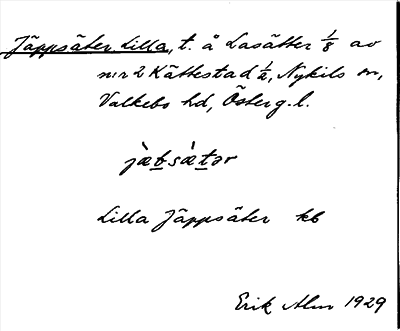 Jäppsäter Lilla, t. å Lasätter 1/8 av
nr 2 Kättestad 1/2, Nykils sn,
Valkebo hd, Österg. l.
jàb̲sàt̲ər
Lilla Jäppsäter kb
Erik Alm 1929